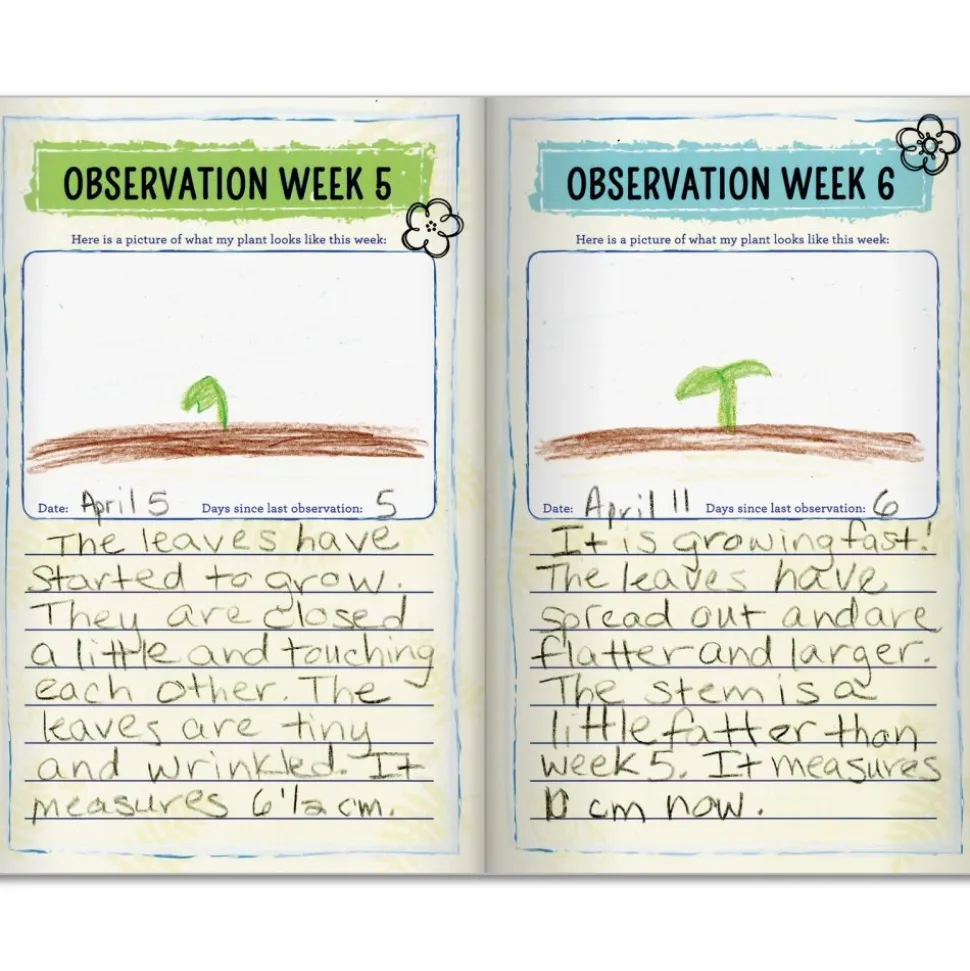 OBSERVATION WEEK 5
Here is a picture of what my plant looks like this week:
Date: April 5 Days since last observation: 5
The leaves have
started to grow.
They are closed
a little and touching
each other. The
leaves are tiny
and wrinkled. It
measures 6 1/2 cm.
OBSERVATION WEEK 6
Here is a picture of what my plant looks like this week:
Date: April 11 Days since last observation: 6
It is growing fast!
The leaves have
spread out and are
flatter and larger.
The stem is a
little fatter than
week 5. It measures
10 cm now.